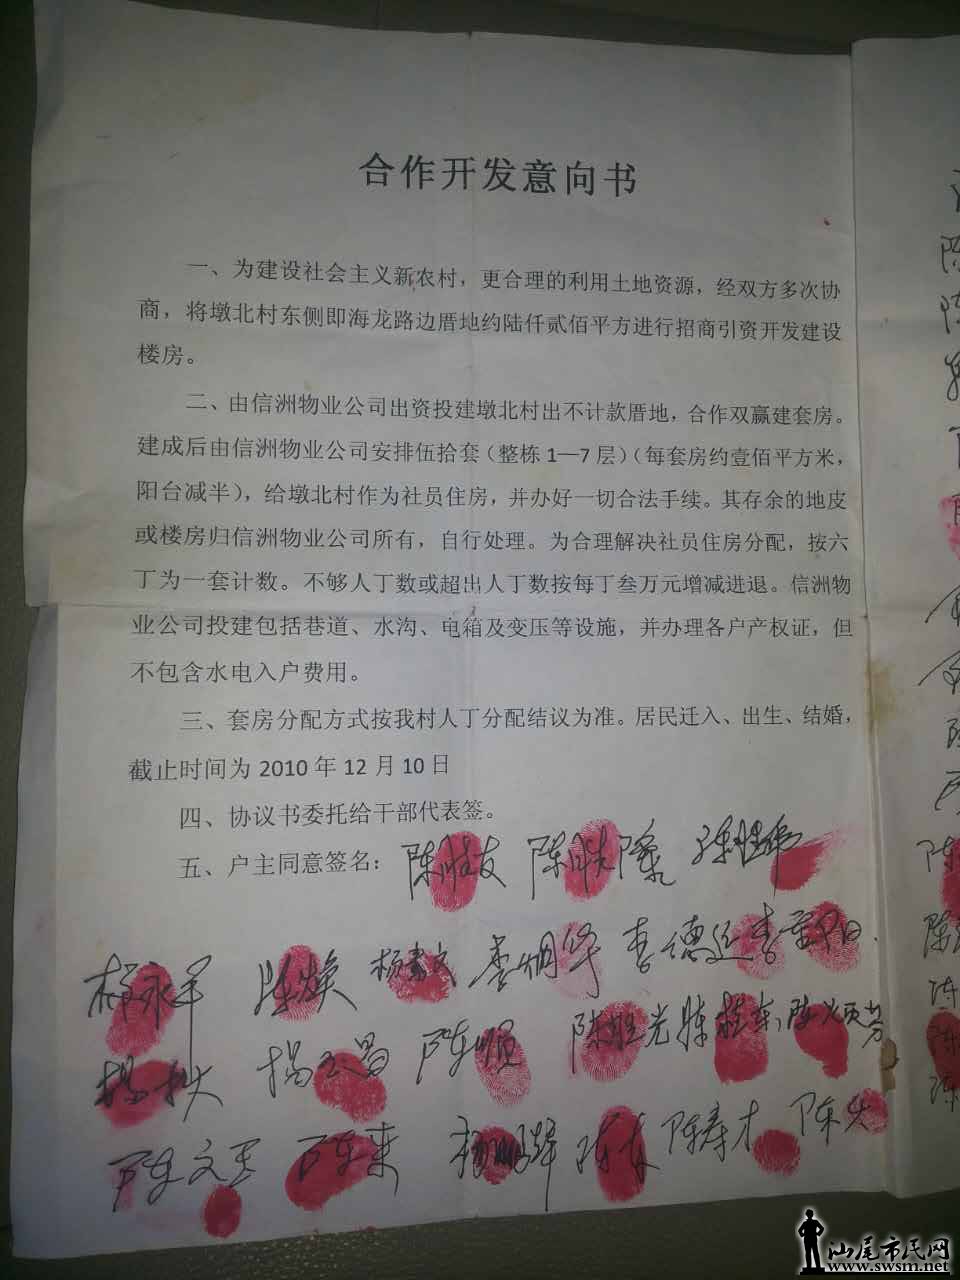 合作开发意向书
一、为建设社会主义新农村，更合理的利用土地资源，经双方多次协
商，将墩北村东侧即海龙路边厝地约陆仟贰佰平方进行招商引资开发建设
楼房。
二、由信洲物业公司出资投建墩北村出不计款厝地，合作双赢建套房。
建成后由信洲物业公司安排伍拾套（整栋 1—7 层）（每套房约壹佰平方米，
阳台减半），给墩北村作为社员住房，并办好一切合法手续。其存余的地皮
或楼房归信洲物业公司所有，自行处理。为合理解决社员住房分配，按六
丁为一套计数。不够人丁数或超出人丁数按每丁叁万元增减进退。信洲物
业公司投建包括巷道、水沟、电箱及变压等设施，并办理各户产权证，但
不包含水电入户费用。
三、套房分配方式按我村人丁分配结议为准。居民迁入、出生、结婚，
截止时间为 2010 年 12 月 10 日
四、协议书委托给干部代表签。
五、户主同意签名：陈胜友
杨永平 陈焕 李德廷
陈顺 陈胜光
陈文 陈来 陈寿才
汕尾市民网
www.swsm.net